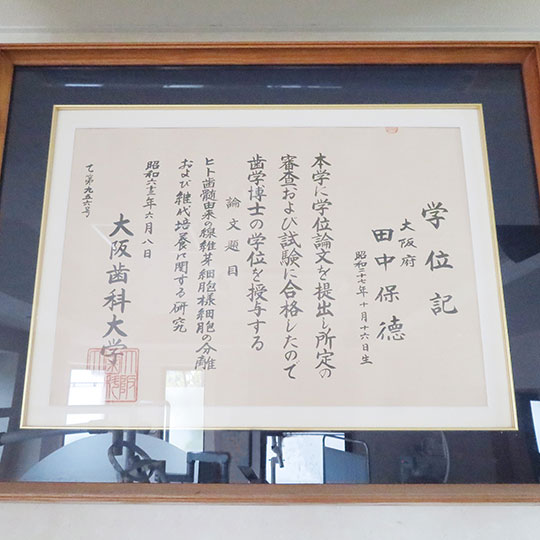 学位記
大阪府
田中保德
昭和三十七年十月十六日生
本学に学位論文を提出し所定の
審査および試験に合格したので
歯学博士の学位を授与する
論文題目
ヒト歯髄由来の線維芽細胞様細胞の分離
および継代培養に関する研究
昭和六十三年六月八日
大阪歯科大学
乙第九五六号